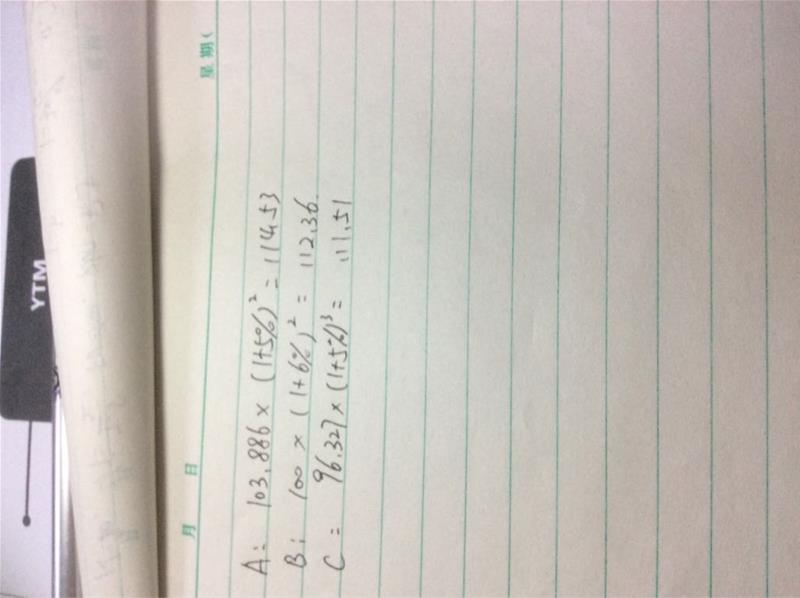 YTM
月 日 星期(
A: 103.886 × (1+5%)² = 114.53
B: 100 × (1+6%)² = 112.36
C = 96.327 × (1+5%)³ = 111.51